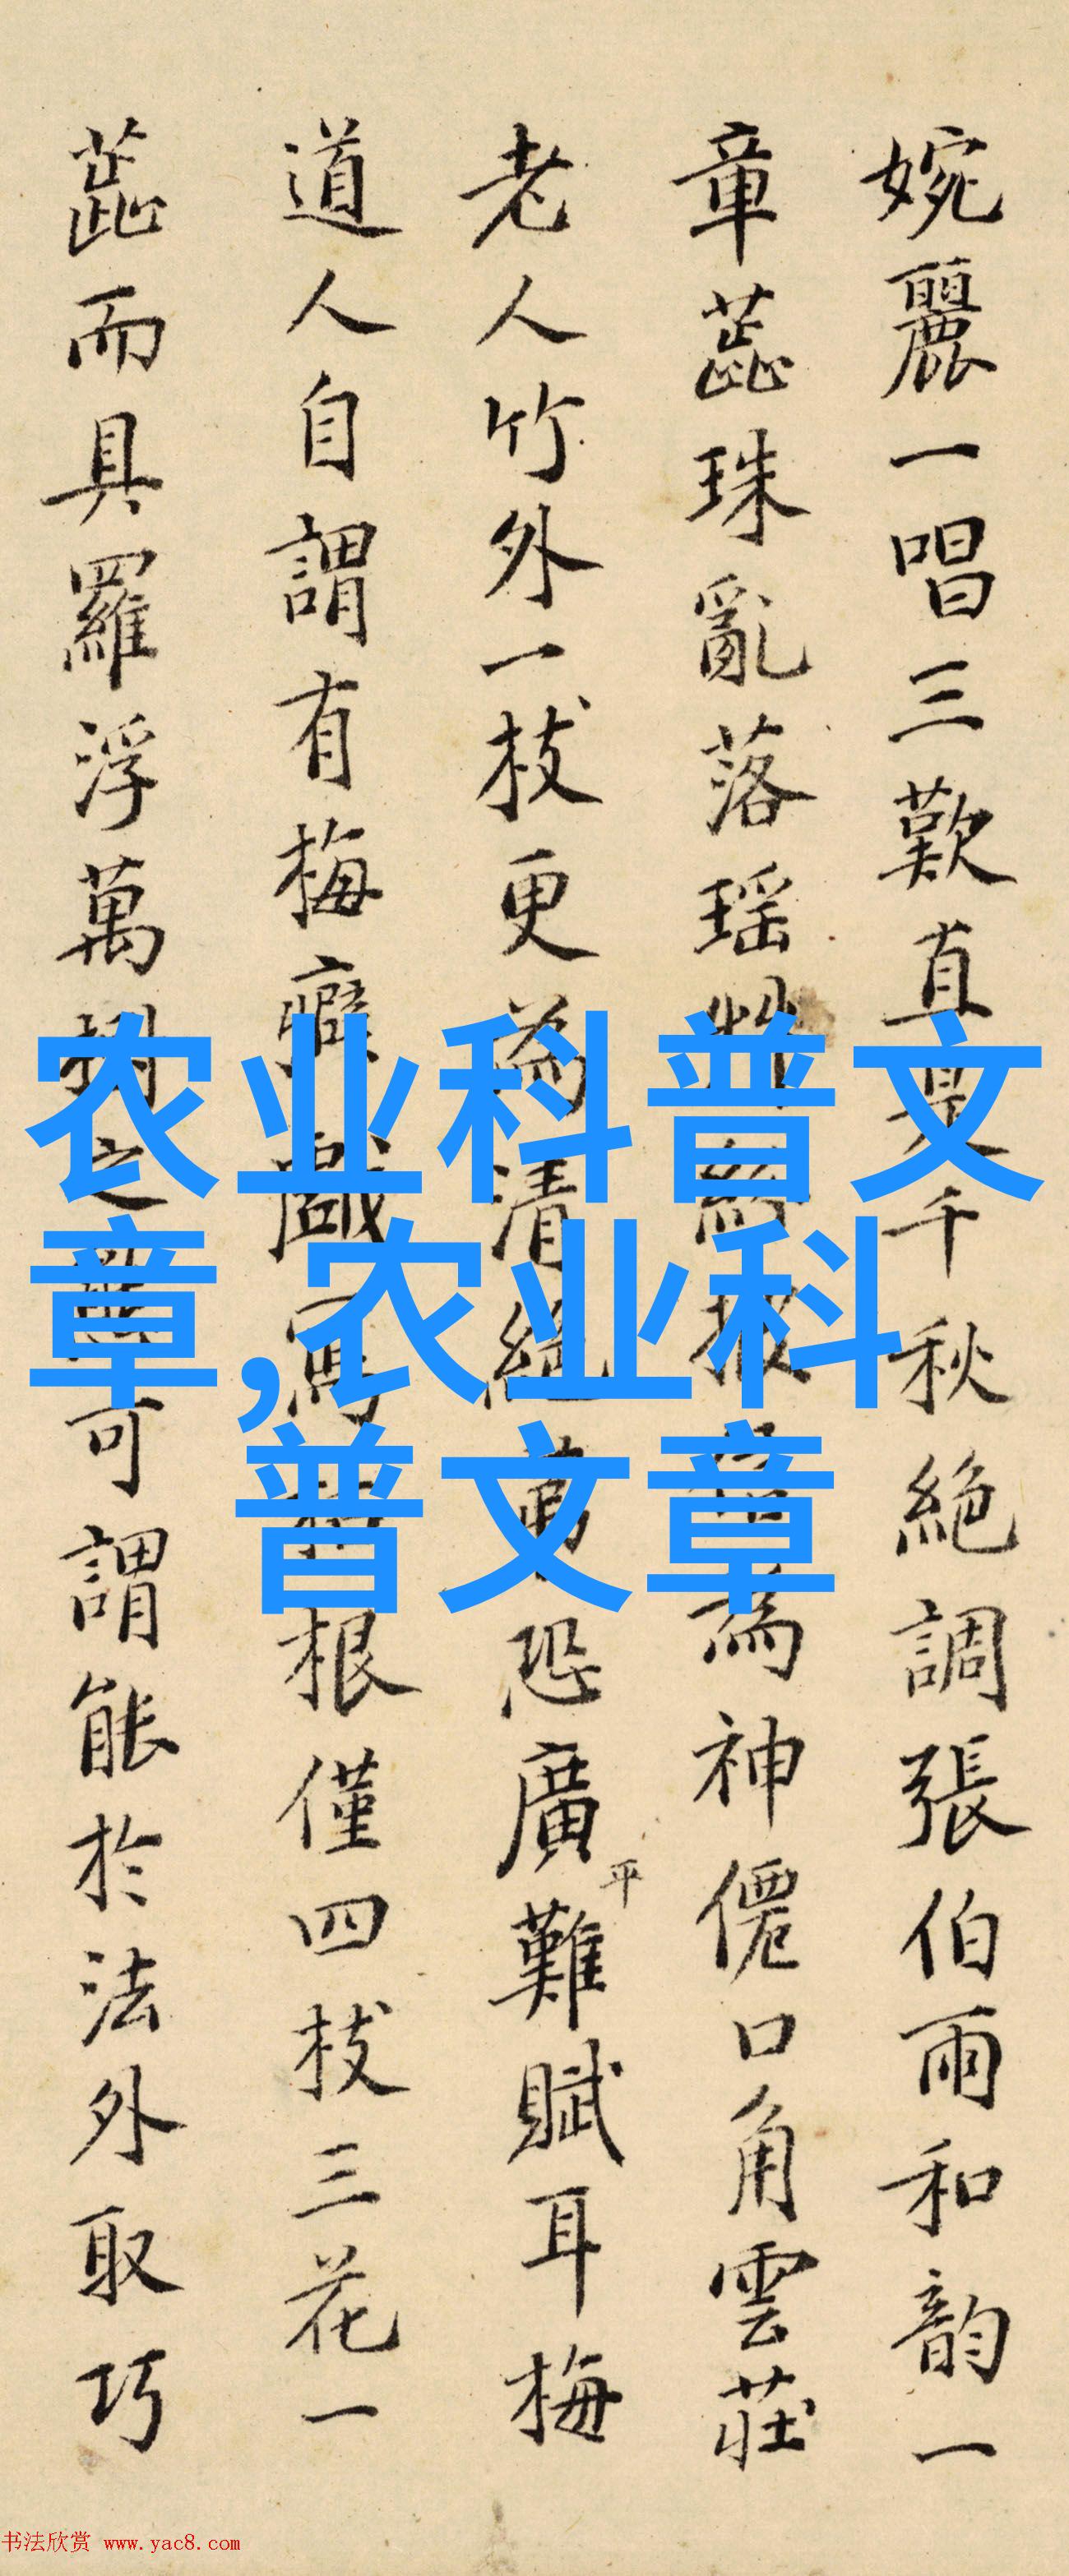 婉麗一唱三歎直是千秋絕調張伯雨和韵一
章蕋珠亂落瑶為神僊口角雲莊
老人竹外一枝更為清絕恐廣平難賦耳梅
道人自謂有梅癖戲寫根僅四枝三花一
蕋而具羅浮萬樹之可謂能於法外取巧
农业科普文
章,农业科
普文章
书法欣赏 www.yac8.com